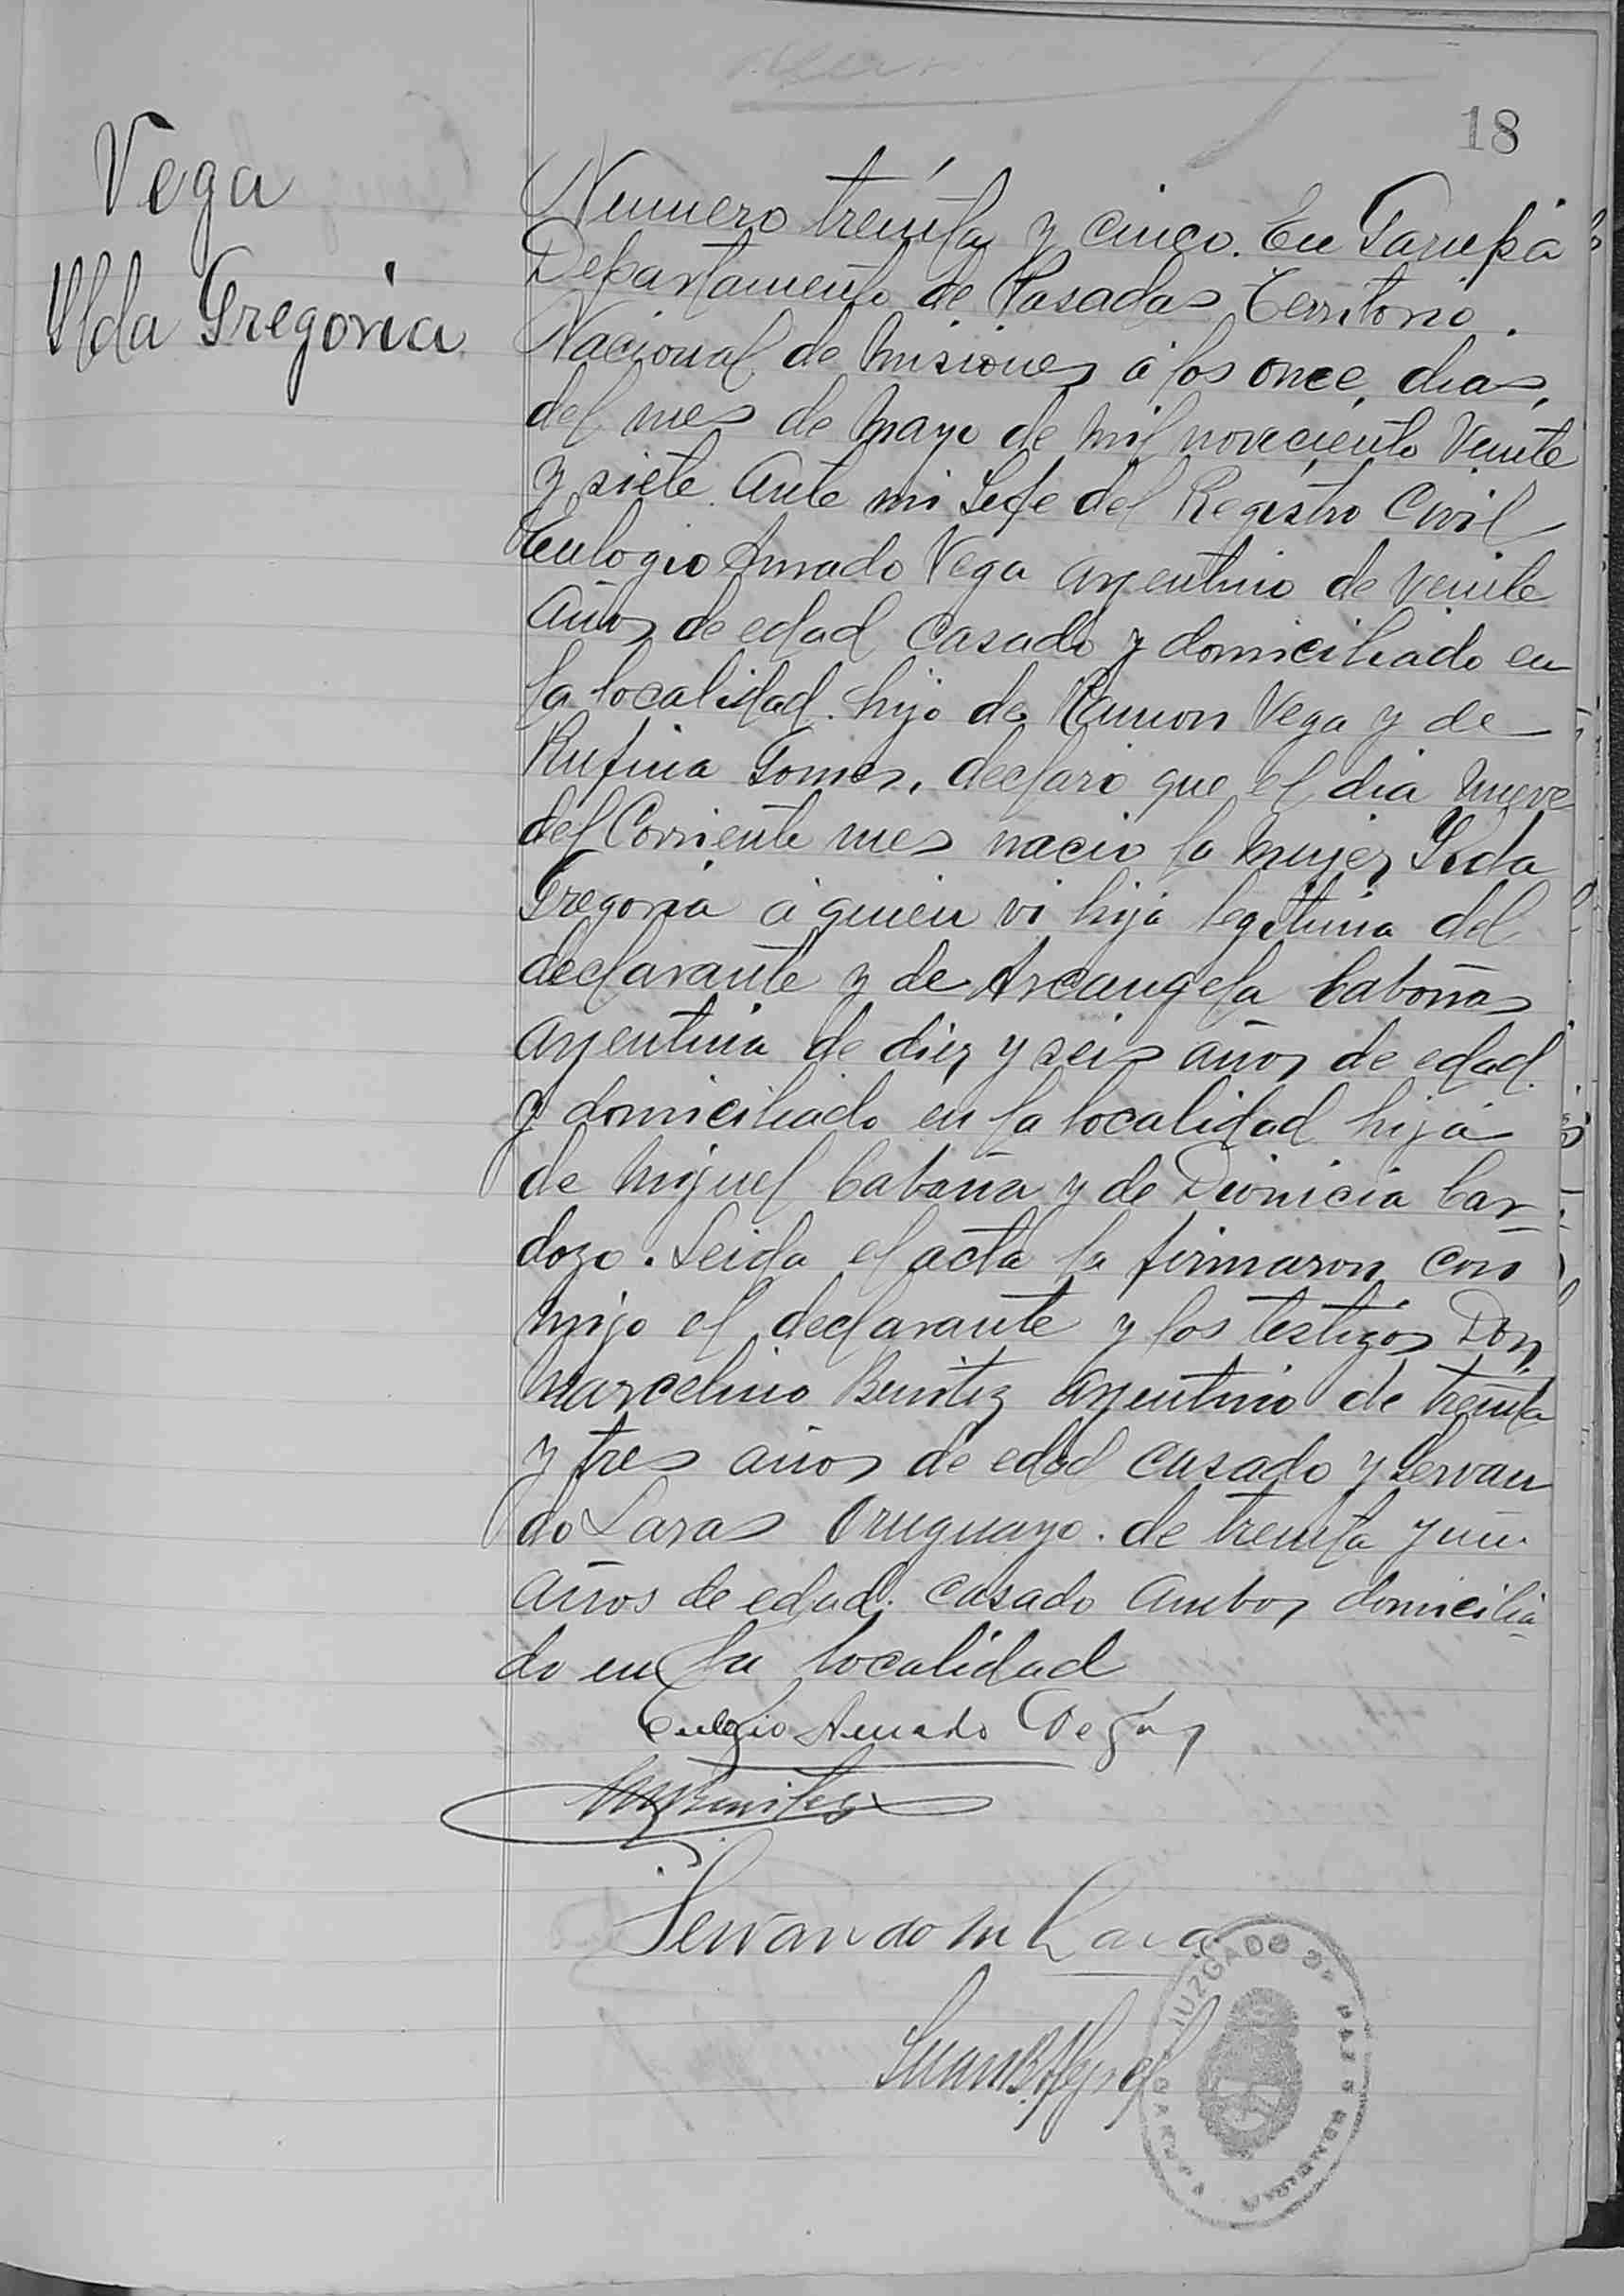 18
Vega
Ilda Gregoria
Numero treinta y cinco. En Garupá
Departamento de Posadas Territorio.
Nacional de Misiones á los once, dias,
del mes de Mayo de mil noveciento Veinte
y siete. Ante mi Gefe del Registro Civil
Eulogio Amado Vega argentino de veinte
años de edad casado y domiciliado en
la localidad. hijo de Ramon Vega y de
Rufina Gomes, declaro que el dia nueve
del Corriente mes nacio la mujer Ilda
Gregoria á quien vi hija legitima del
declarante y de Arcangela Cabañas
argentina de diez y seis años de edad.
y domiciliado en la localidad hija
de Miguel Cabaña y de Dionicia Car-
dozo. Leida el acta la firmaron con
migo el declarante y los testigos Don
Marcelino Benitez argentino de treinta
y tres años de edad casado y Servan
do Laras Oruguayo. de treinta y un
años de edad, casado ambos domicilia-
do en la localidad
Eulogio Amado Vega
M Benitez
Servando M Lara
Juan B.
JUZGADO DE PAZ
GARUPA